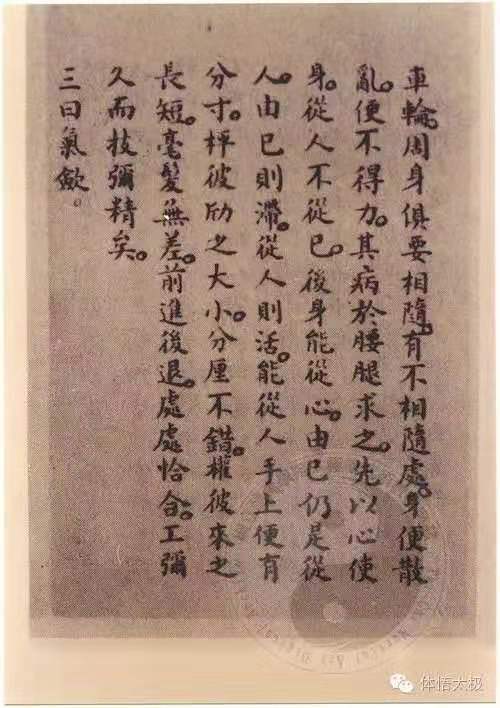 車輪。周身俱要相隨。有不相隨處。身便散
亂。便不得力。其病於腰腿求之。先以心使
身。從人不從己。後身能從心。由己仍是從
人。由己則滯。從人則活。能從人手上便有
分寸。枰彼劤之大小。分厘不錯。權彼來之
長短。毫髮無差。前進後退。處處恰合。工彌
久而技彌精矣。
三曰氣歛。
体悟太极